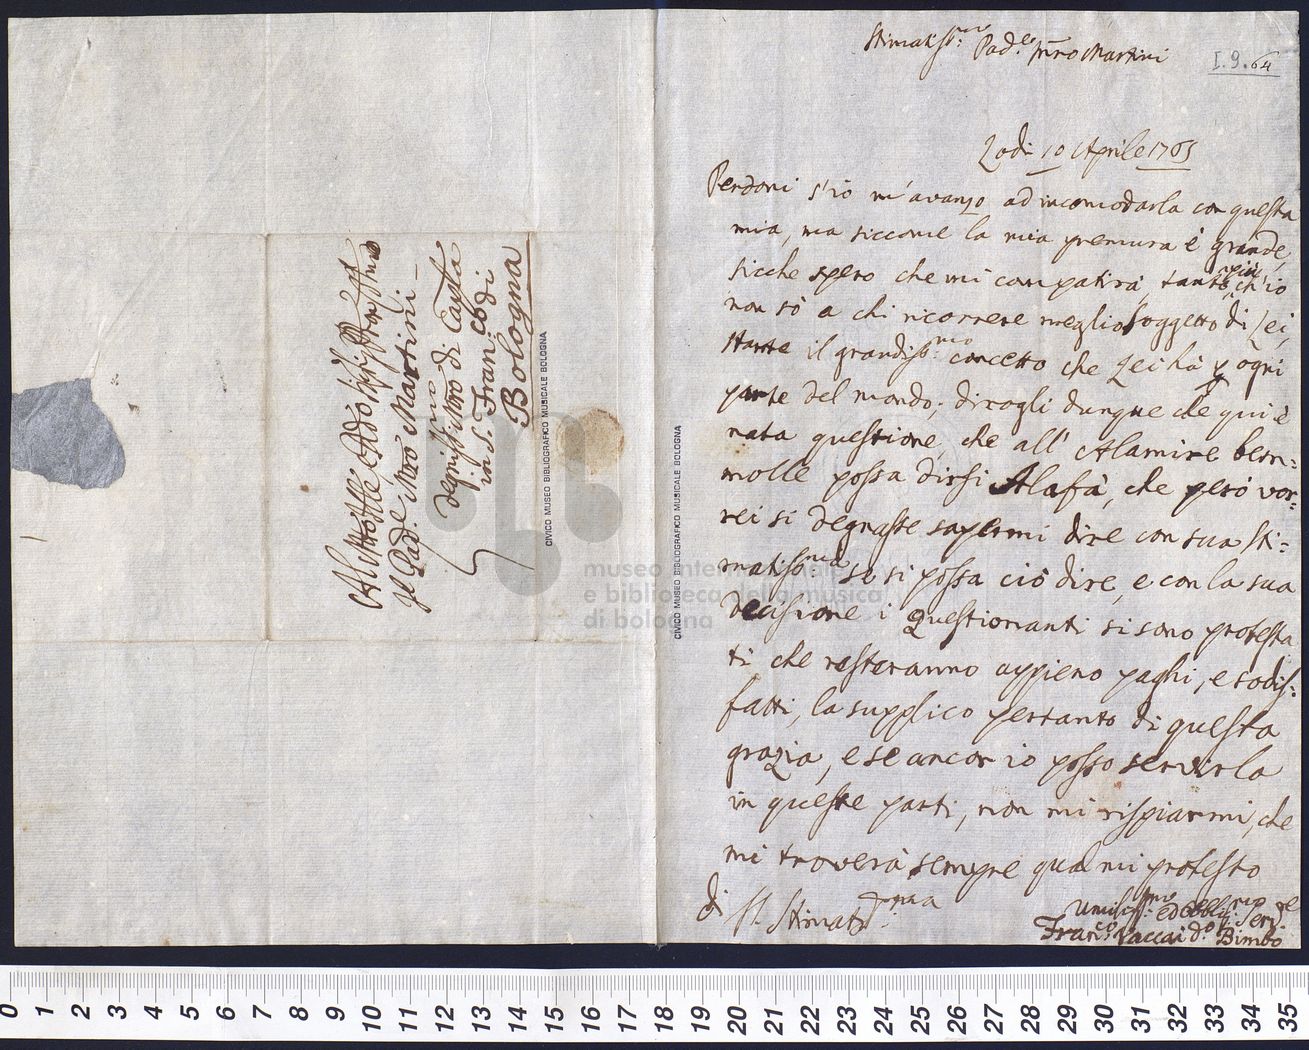 Stimatiss.mo Pad.e Mro Martini
I.9.64
Lodi 10 Aprile 1765
Perdoni s'io m'avanzo ad incomodarla con questa
mia, ma siccome la mia premura è grande,
sicche spero che mi compatirà tanto più ch'io
non sò a chi ricorrere meglio soggetto di Lei,
stante il grandiss.mo concetto che Lei hà p ogni
parte del mondo; dicogli dunque che qui è
nata questione, che all' Alamire bem:
molle possa dirsi Alafà, che però vor:
rei si degnasse sapermi dire con sua sti:
matiss.ma se si possa ciò dire, e con la sua
decisione i Questionanti si sono protesta
ti che resteranno appieno paghi, e sodis:
fatti, la supplico pertanto di questa
grazia, e se ancor io posso servirla
in queste parti, non mi rispiarmi, che
mi troverà sempre qual mi protesto
di
Umiliss.mo ed Obblig.mo Ser.re
Fran.co Vaccai d.o il Bimbo
Pad.e Mro Martini
degniss.mo Mro di Capla
in S. Fran.co di
Bologna
CIVICO MUSEO BIBLIOGRAFICO MUSICALE BOLOGNA
CIVICO MUSEO BIBLIOGRAFICO MUSICALE BOLOGNA
museo internazionale
e biblioteca della musica
di bologna
0 1 2 3 4 5 6 7 8 9 10 11 12 13 14 15 16 17 18 19 20 21 22 23 24 25 26 27 28 29 30 31 32 33 34 35